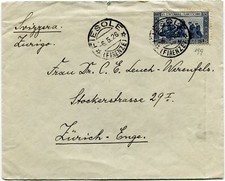 Svizzera
Zurigo
FIESOLE
6.5.26
(FIRENZE)
Frau Dr. C. E. Leuch-Werenfels
Stockerstrasse 29I.
Zürich-Enge.